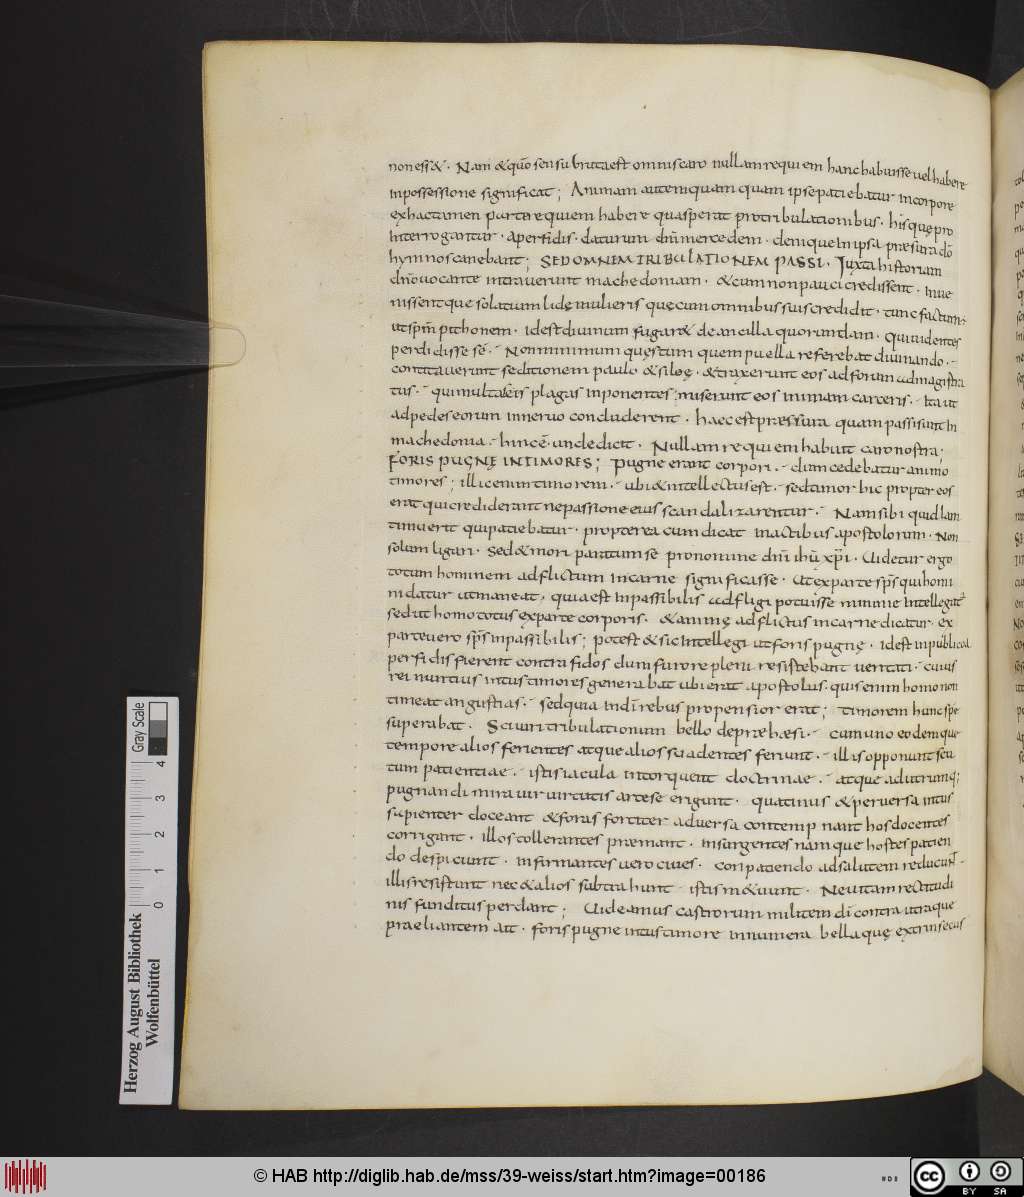 non ess&. Nam & quō sensu bruta est omnis caro nullam requiem hanc habuisse uel habere
in possessione significat; Animam autem quamquam ipse patiebatur in corpore
ex hac tamen parte requiem habere quas perat pro tribulationibus. his quę pro
interrogantur. a perfidis. daturum dn̄m mercedem. denique in ipsa præsura dō
hymnos canebant; SED OMNEM TRIBULATIONEM PASSI. Juxta historiam
dn̄o uocante intrauerunt machedoniam. & cum non pauci credissent. inue
nissentque solatium lidę mulieris quę cum omnibus suis credidit. tunc factum
ut spm̄ pithonem. id est diuinum fugar& de ancilla quorundam. qui uidentes
perdidisse sē. Non minimum quęstum quem puella referebat diuinando.
contitauerunt seditionem paulo & silę. & traxerunt eos ad forum ad magistra
tus. qui multas eis plagas inponentes; miserunt eos in imam carceris. Ita ut
ad pedes eorum in neruo concluderent. haec est præssura quam passi sunt in
machedonia. hinc ē. unde dicit. Nullam requiem habuit caro nostra;
FORIS PUGNĘ INTIMORES; pugne erant corpori. dum cedebatur animo
timores; illic enim timorem. ubi & intellectus est. sed timor hic propter eos
erat qui crediderant ne passione eius scandalizarentur. Nam sibi quid iam
timuerit qui patiebatur. propterea cum dicat in actibus apostolorum. Non
solum ligari. sed & mori paratum se pro nomine dn̄i ihū xp̄i. Uidetur ergo
totum hominem adflictum in carne significasse. Ut ex parte sps̄ qui homi
ni datur ut maneat. quia est inpassibilis adfligi potuisse minime intellegit̃
sed ut homo totus ex parte corporis. & animę adflictus in carne dicatur. ex
parte uero sps̄ inpassibilis; potest & sic intellegi ut foris pugnę. id est in publico a
perfidis fierent contra fidos dum furore pleni resistebant ueritati. cuius
rei nuntius intus timores generabat ubi erat apostolus. quis enim homo non
timeat angustias. sed quia in dī rebus propensior erat; timorem hunc spe
superabat. Scium tribulationum bello depræhæsi. cum uno eodemque
tempore alios ferientes atque alios suadentes ferunt. illis opponunt scu
tum patientiae. istis iacula intorquent doctrinae. atque ad utrumq;
pugnandi mira uir uirtutis arte se erigunt. quatinus & peruersa intus
sapienter doceant & foras fortiter aduersa contempnant hos docentes
corrigant. illos tollerantes præmant. insurgentes namque hostes patien
do despicunt. infirmantes uero ciues. conpatiendo ad salutem reducunt̄.
illis resistunt nec & alios subtrahunt istis m&uunt. Ne uitam rectitudi
nis funditus perdant; Uideamus castrorum militem dī contra utraque
praeliantem ait. foris pugne intus timore innumera bella quę extrinsecus
Gray Scale
0 1 2 3 4
Herzog August Bibliothek
Wolfenbüttel
© HAB http://diglib.hab.de/mss/39-weiss/start.htm?image=00186
cc BY SA